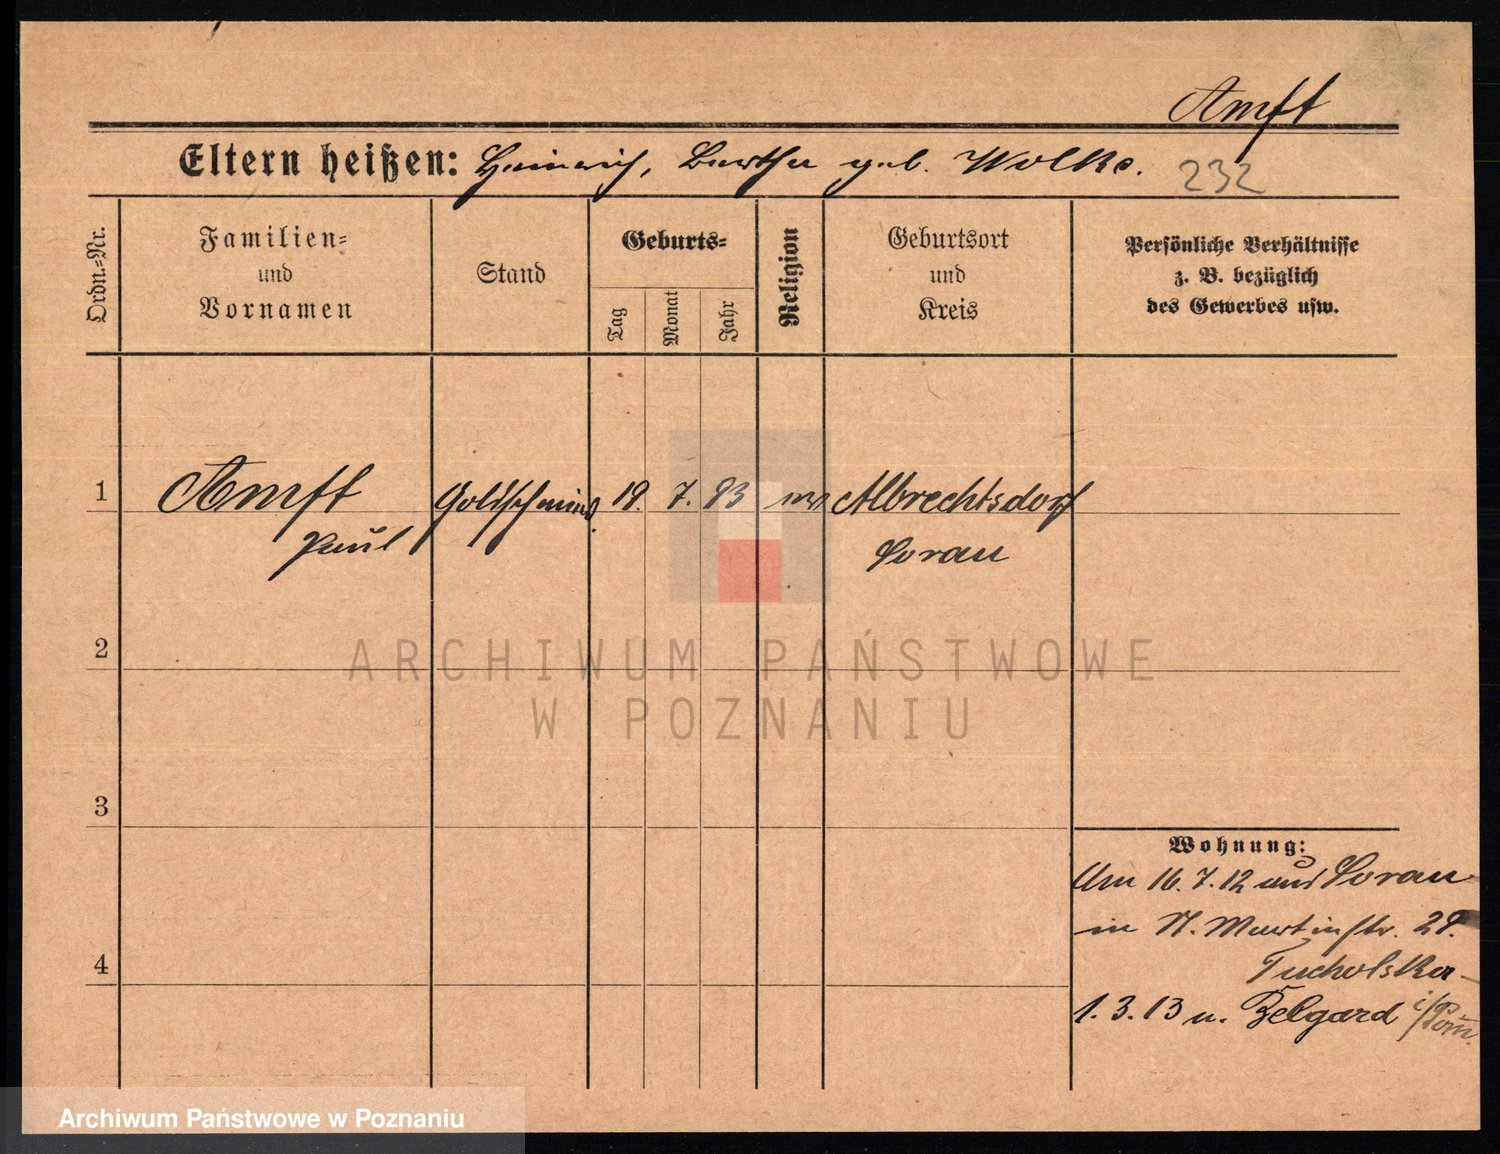 Amft
Eltern heißen: Heinrich, Bertha geb. Wolke.
232
Ordn.=Nr.
Familien=
und
Vornamen
Stand
Geburts=
Tag
Monat
Jahr
Religion
Geburtsort
und
Kreis
Persönliche Verhältnisse
z. B. bezüglich
des Gewerbes usw.
1
Amft
Paul
Goldschmied
19.
7.
93
Albrechtsdorf
Sorau
2
ARCHIWUM PAŃSTWOWE
W POZNANIU
3
Wohnung:
Am 16.7.12 aus Sorau
in St. Martinstr. 29.
Tucholska
4
1.3.13 n. Belgard i/Pom.
Archiwum Państwowe w Poznaniu